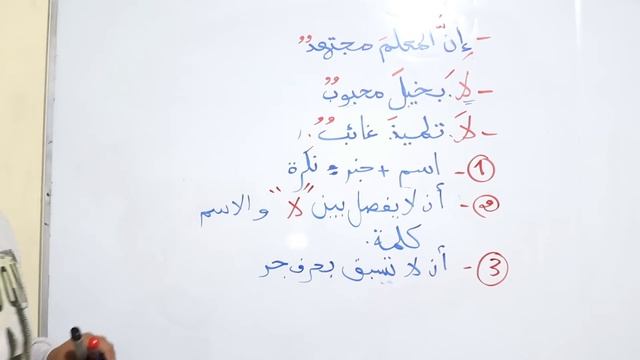 - إنَّ المعلمَ مجتهدٌ
- لَا بخيلَ محبوبٌ
- لَا تلميذَ غائبٌ.
1 - اسم + خبر = نكرة
2 - أن لا يفصل بين "لا" والاسم
كلمة.
3 - أن لا تسبق بحرف جر